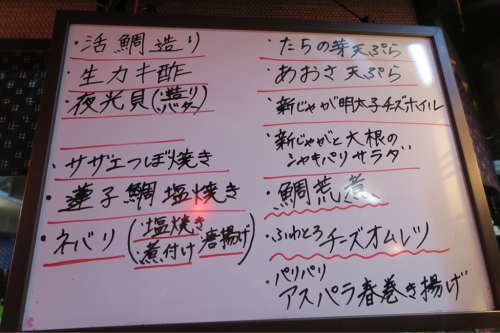 ・活鯛造り
・生カキ酢
・夜光貝(造り バター)
・サザエつぼ焼き
・蓮子鯛塩焼き
・ネバリ(塩焼き ・煮付け 唐揚げ)
・たらの芽天ぷら
・あおさ天ぷら
・新じゃが明太子チーズホイル
・新じゃがと大根の
シャキパリサラダ
・鯛荒煮
・ふわとろチーズオムレツ
・パリパリ
アスパラ春巻き揚げ